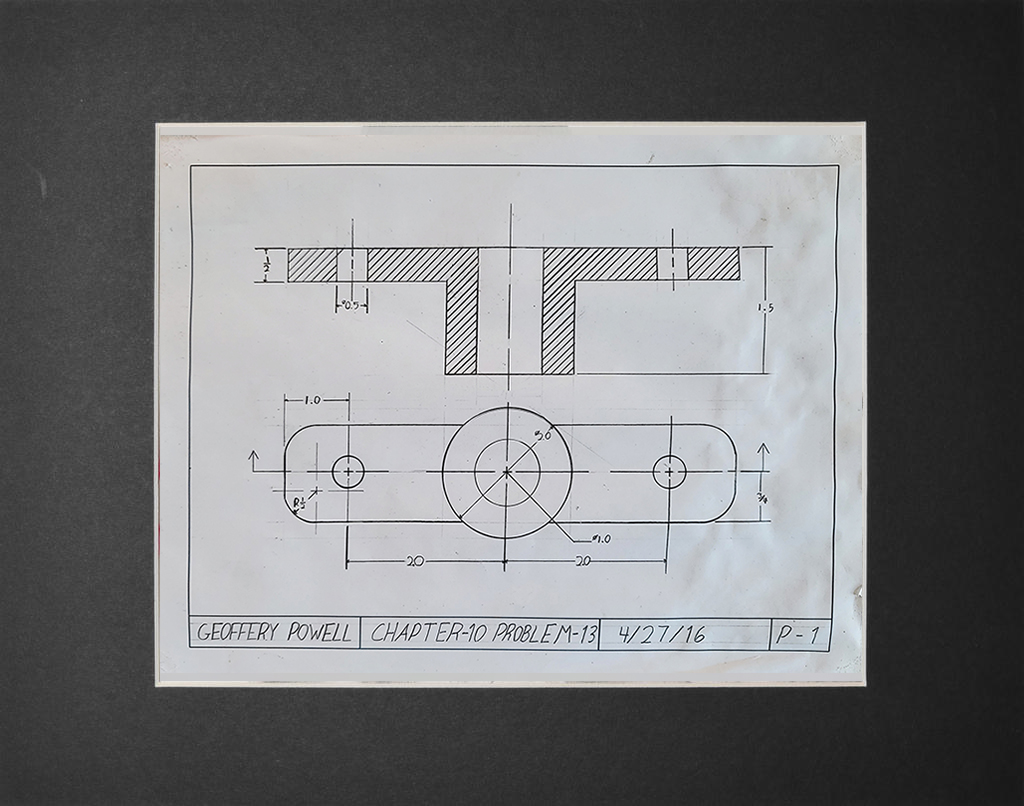 1/2
ø0.5
1.5
1.0
ø2.0
R1/2
3/4
ø1.0
2.0 2.0
GEOFFERY POWELL CHAPTER-10 PROBLEM-13 4/27/16 P-1